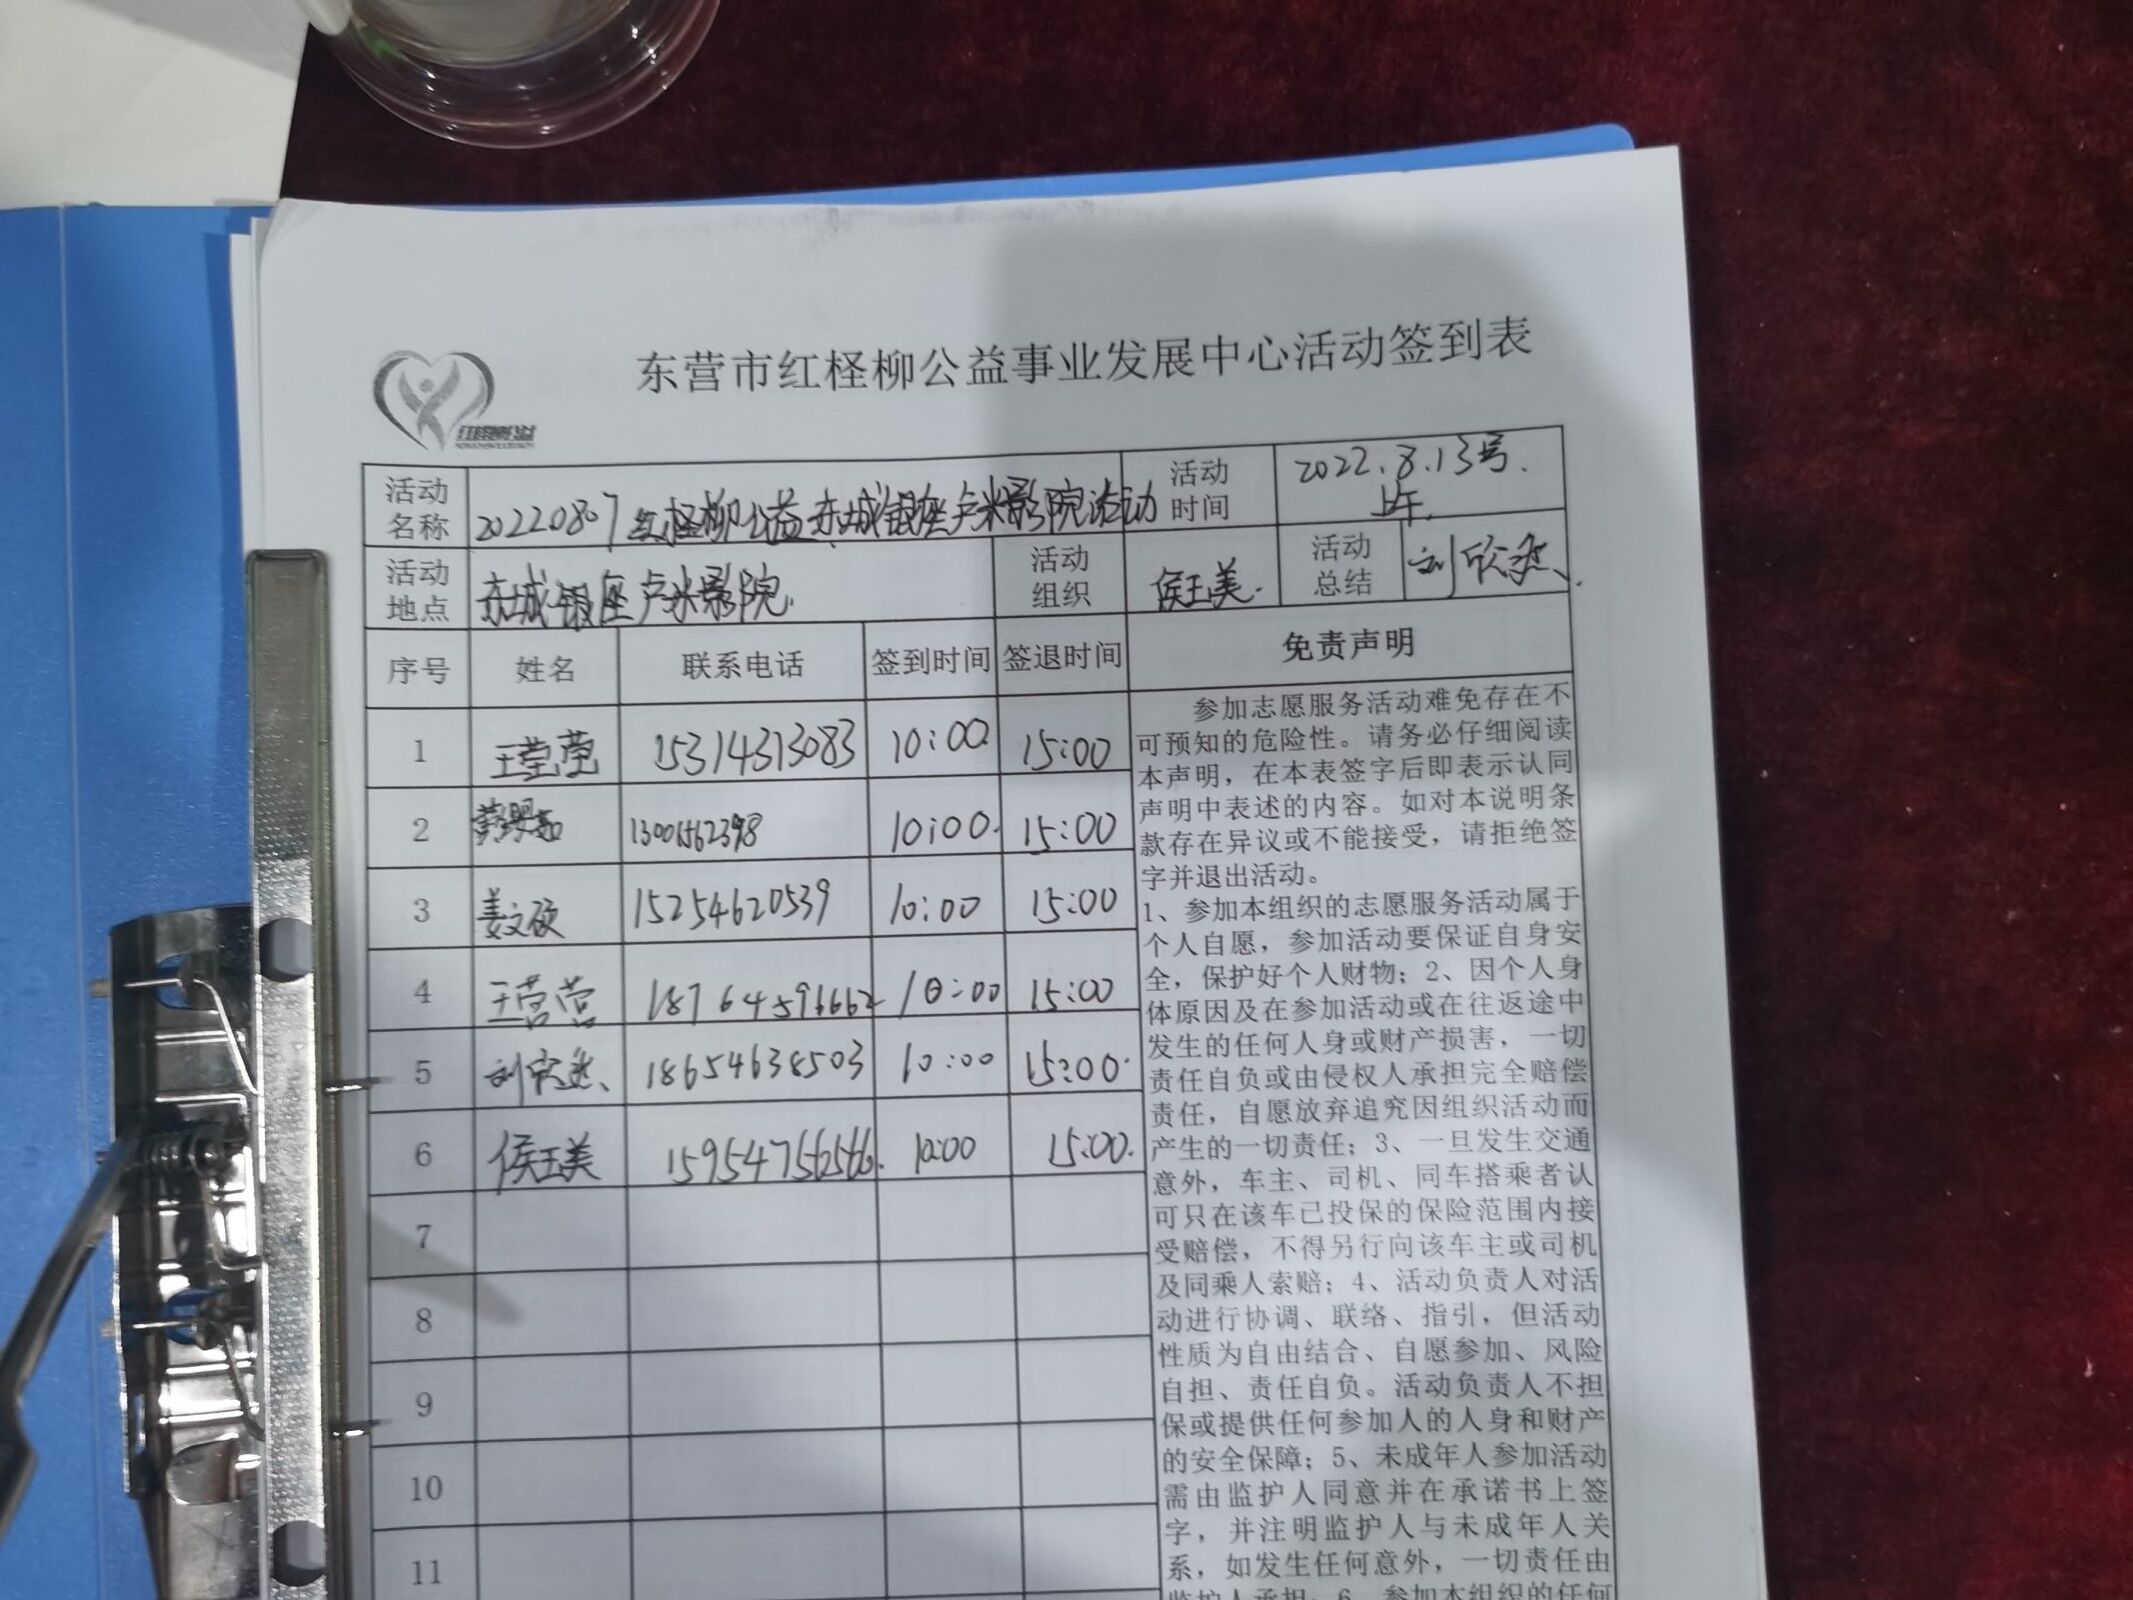 东营市红柽柳公益事业发展中心活动签到表
红柽柳公益
活动名称 20220807红柽柳公益东城银座卢米影院活动 活动时间 2022.8.13号.上午.
活动地点 东城银座卢米影院. 活动组织 侯玉美. 活动总结 刘欣然、
序号 姓名 联系电话 签到时间 签退时间 免责声明
1 王莹莹 15314313083 10:00 15:00
2 13001562398 10:00. 15:00
3 姜文硕 15254620539 10:00 15:00
4 王营营 18764596662 10:00 15:00
5 刘欣然、 18654638503 10:00 15:00.
6 侯玉美 15954756566. 10:00 15:00.
7
8
9
10
11
参加志愿服务活动难免存在不
可预知的危险性。请务必仔细阅读
本声明，在本表签字后即表示认同
声明中表述的内容。如对本说明条
款存在异议或不能接受，请拒绝签
字并退出活动。
1、参加本组织的志愿服务活动属于
个人自愿，参加活动要保证自身安
全，保护好个人财物；2、因个人身
体原因及在参加活动或在往返途中
发生的任何人身或财产损害，一切
责任自负或由侵权人承担完全赔偿
责任，自愿放弃追究因组织活动而
产生的一切责任；3、一旦发生交通
意外，车主、司机、同车搭乘者认
可只在该车已投保的保险范围内接
受赔偿，不得另行向该车主或司机
及同乘人索赔；4、活动负责人对活
动进行协调、联络、指引，但活动
性质为自由结合、自愿参加、风险
自担、责任自负。活动负责人不担
保或提供任何参加人的人身和财产
的安全保障；5、未成年人参加活动
需由监护人同意并在承诺书上签
字，并注明监护人与未成年人关
系，如发生任何意外，一切责任由
监护人承担；6、参加本组织的任何